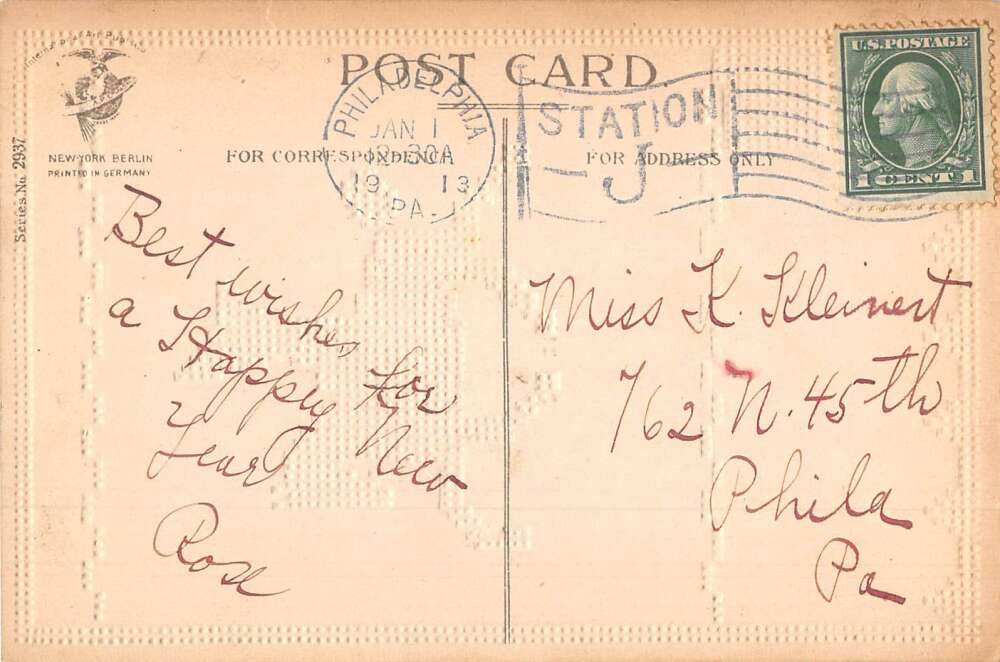 Internat'l Art Publ. Co.
NEW-YORK BERLIN
PRINTED IN GERMANY
Series No. 2937
POST CARD
FOR CORRESPONDENCE
FOR ADDRESS ONLY
PHILADELPHIA
JAN 1
12-30A
19 13
PA.
STATION
J
U.S. POSTAGE
1 CENT 1
Best wishes for
a Happy New
Year
Rose
Miss K. Kleinert
762 N. 45th
Phila
Pa